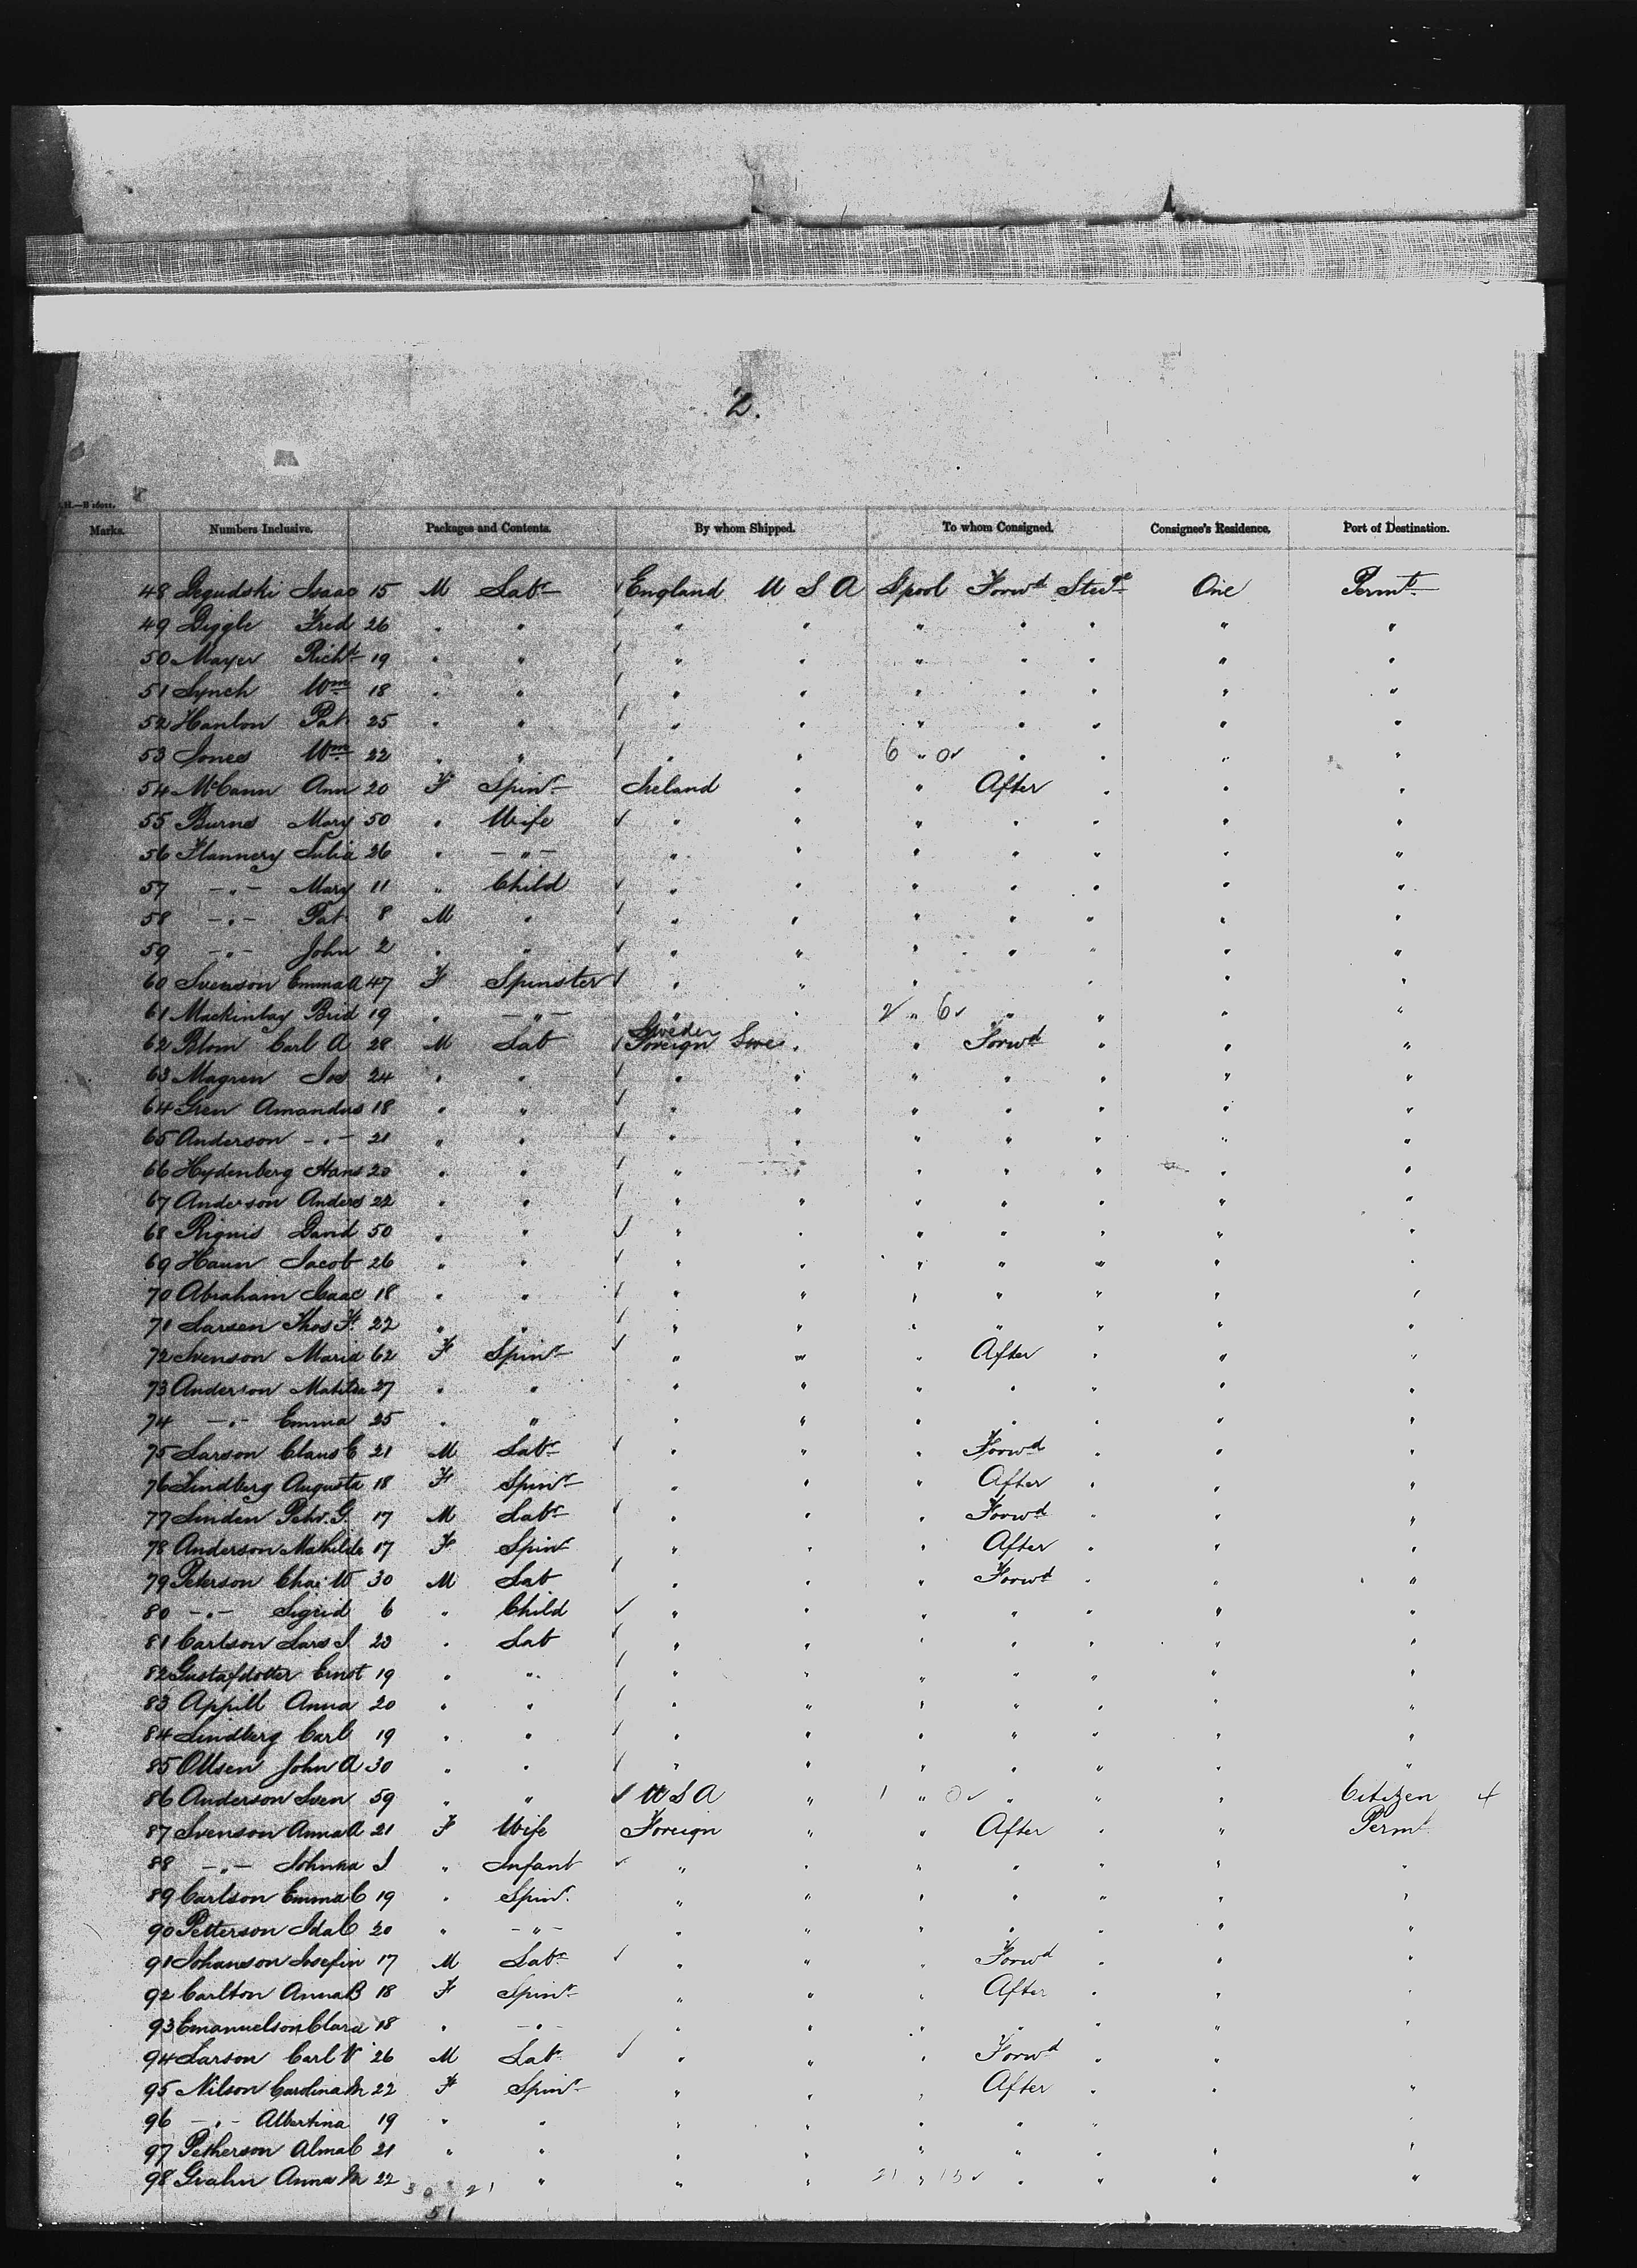 2.
Marks. Numbers Inclusive. Packages and Contents. By whom Shipped. To whom Consigned. Consignee's Residence. Port of Destination.
48 Isaac 15 M Labr England U S A Lpool Forwd One Permt
49 Diggle Fred 26 " " " " " " " " "
50 Mayer Richd 19 " " " " " " " " "
51 Lynch Wm 18 " " " " " " " " "
52 Hanlon Pat 25 " " " " " " " " "
53 Jones Wm 22 " " " " 6 " 0 " " " "
54 McCann Ann 20 F Spinr Ireland " " After " " "
55 Burns Mary 50 " Wife " " " " " " "
56 Flannery Julia 26 " -"- " " " " " " "
57 -"- Mary 11 " Child " " " " " " "
58 -"- Pat 8 M " " " " " " " "
59 -"- John 2 " " " " " " " " "
60 Svenson Emma A 47 F Spinster " " " " " "
61 Mackinlay Brid 19 " -"- " " 2 " 6 " " " "
62 Blom Carl A 28 M Lab Sweden Foreign " " Forwd " " "
63 Magren Jos 24 " " " " " " " " "
64 Gren Amandus 18 " " " " " " " " "
65 Anderson -"- 21 " " " " " " " " "
66 Hydenberg Hans 20 " " " " " " " " "
67 Anderson Anders 22 " " " " " " " " "
68 David 50 " " " " " " " " "
69 Jacob 26 " " " " " " " " "
70 Abraham Isaac 18 " " " " " " " " "
71 Larsen Thos F. 22 " " " " " " " " "
72 Svenson Maria 62 F Spinr " " " After " " "
73 Anderson 27 " " " " " " " " "
74 -"- Emma 25 " " " " " " " " "
75 Larson Claus E 21 M Labr " " " Forwd " " "
76 Lindberg Augusta 18 F Spinr " " " After " " "
77 Linden Petr. G. 17 M Labr " " " Forwd " " "
78 Anderson Mathilda 17 F Spinr " " " After " " "
79 Peterson W 30 M Lab " " " Forwd " " "
80 -"- Sigrid 6 " Child " " " " " " "
81 Carlson Lars J. 23 " Lab " " " " " " "
82 Gustafdotter Ernst 19 " " " " " " " " "
83 Appill Anna 20 " " " " " " " " "
84 Lindberg Carl 19 " " " " " " " " "
85 Ollsen John A 30 " " " " " " " " "
86 Anderson Sven 59 " " U S A " 1 " 0 " " " Citizen 4
87 Svenson Anna A 21 F Wife Foreign " " After " " Permt
88 -"- " Infant " " " " " " "
89 Carlson Emma C 19 " Spinr " " " " " " "
90 Petterson Ida C 20 " -"- " " " " " " "
91 Johanson Josefin 17 M Labr " " " Forwd " " "
92 Carlton Anna B 18 F Spinr " " " After " " "
93 Emanuelson Clara 18 " -"- " " " " " " "
94 Larson Carl V 26 M Labr " " " Forwd " " "
95 Nilson Carolina M 22 F Spinr " " " After " " "
96 -"- Albertina 19 " " " " " " "
97 Petherson Alma C 21 " " " " " " " " "
98 Grahn Anna M 22 " " " " 21 " 13 " " " "
30 21
51